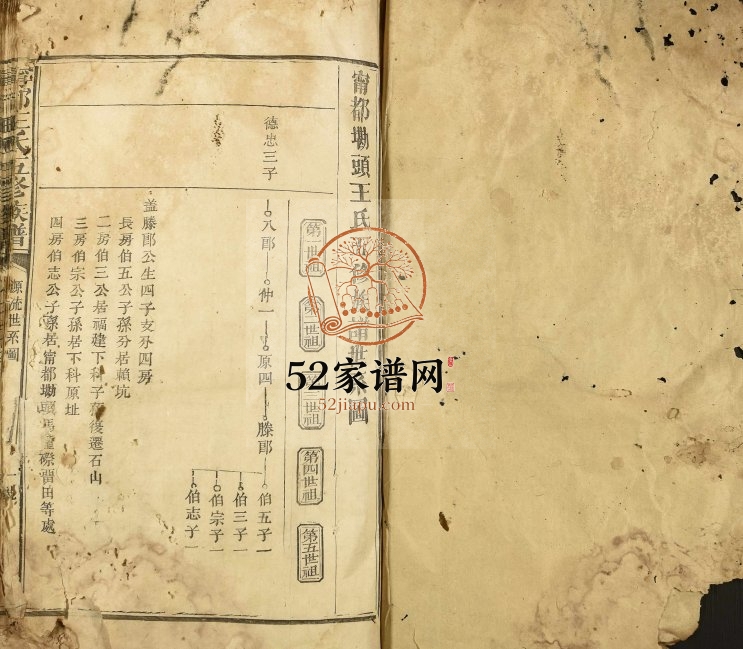 甯都塅頭王氏五修族譜世系圖
第一世祖
第二世祖
第三世祖
第四世祖
第五世祖
德忠三子
八郎
仲一
原四
滕郎
伯五子一
伯三子一
伯宗子一
伯志子一
蓋滕郎公生四子支分四房
長房伯五公子孫分居賴坑
二房伯三公居福建下科子孫後遷石山
三房伯宗公子孫居下科原址
四房伯志公子孫居甯都塅頭馬 等處
甯都王氏五修族譜
源流世系圖
52家谱网
52jiapu.com